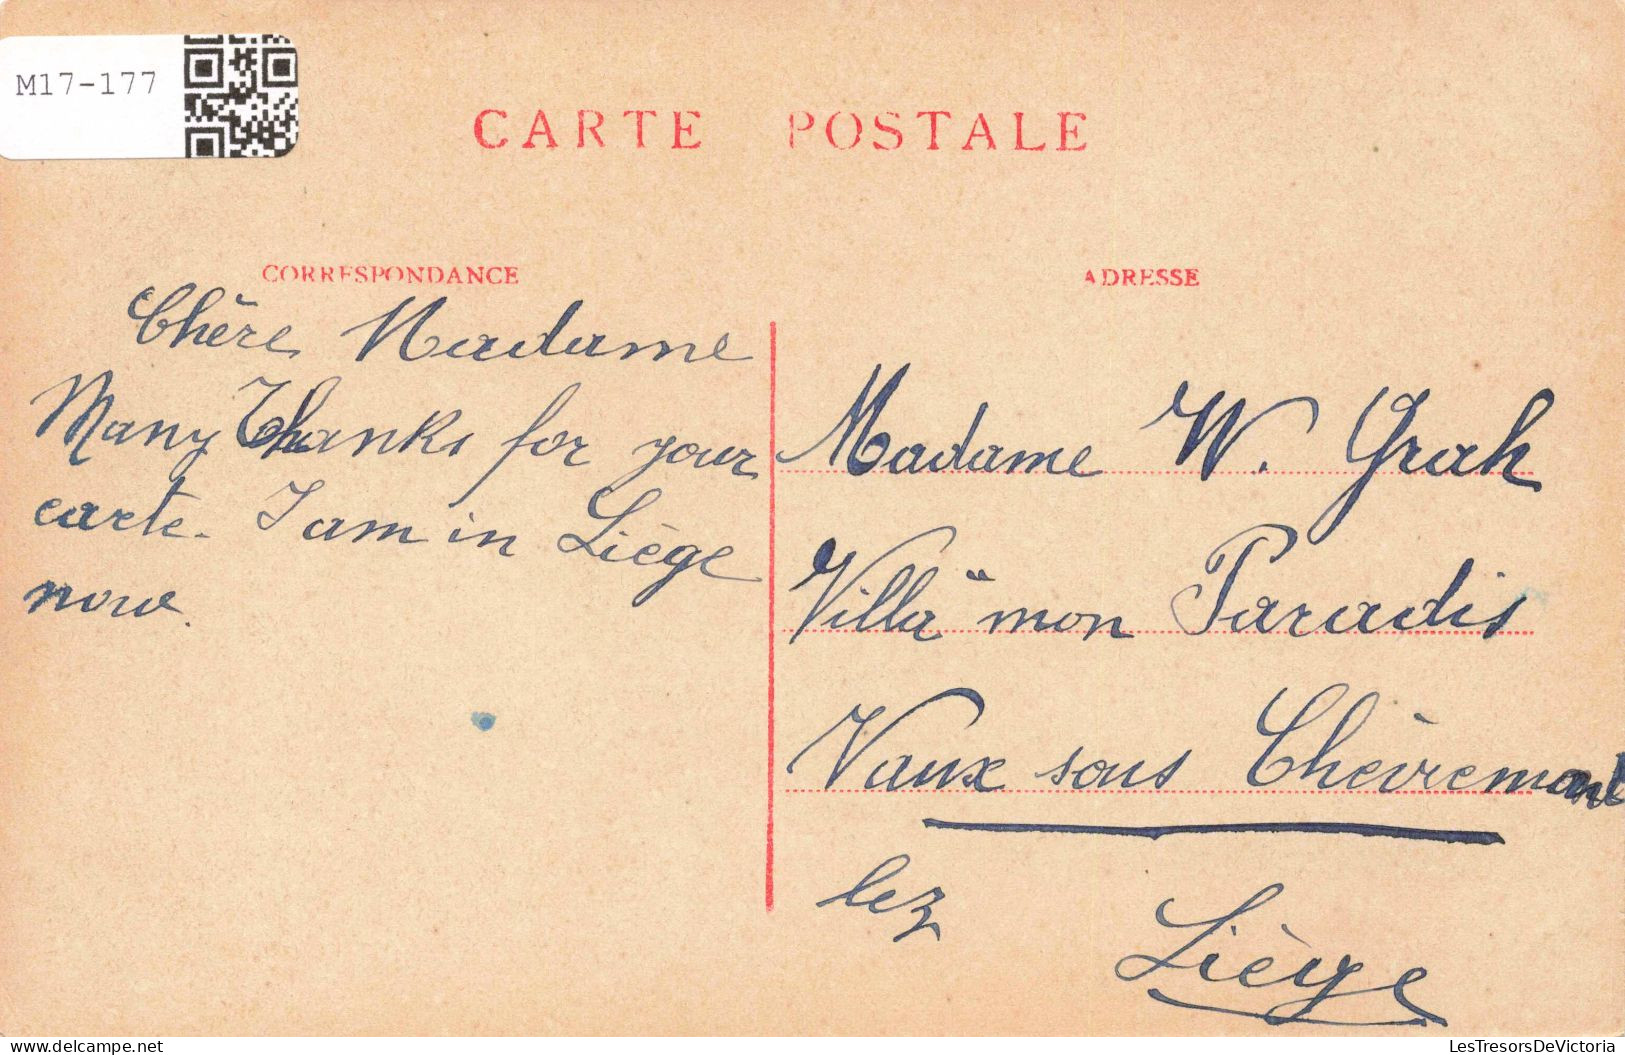 M17-177
CARTE POSTALE
CORRESPONDANCE
Chère Madame
Many Thanks for your
carte. I am in Liège
now.
ADRESSE
Madame W. Grah
Villa "mon Paradis
Vaux sous Chèvremont
lez
Liège
LesTresorsDeVictoria